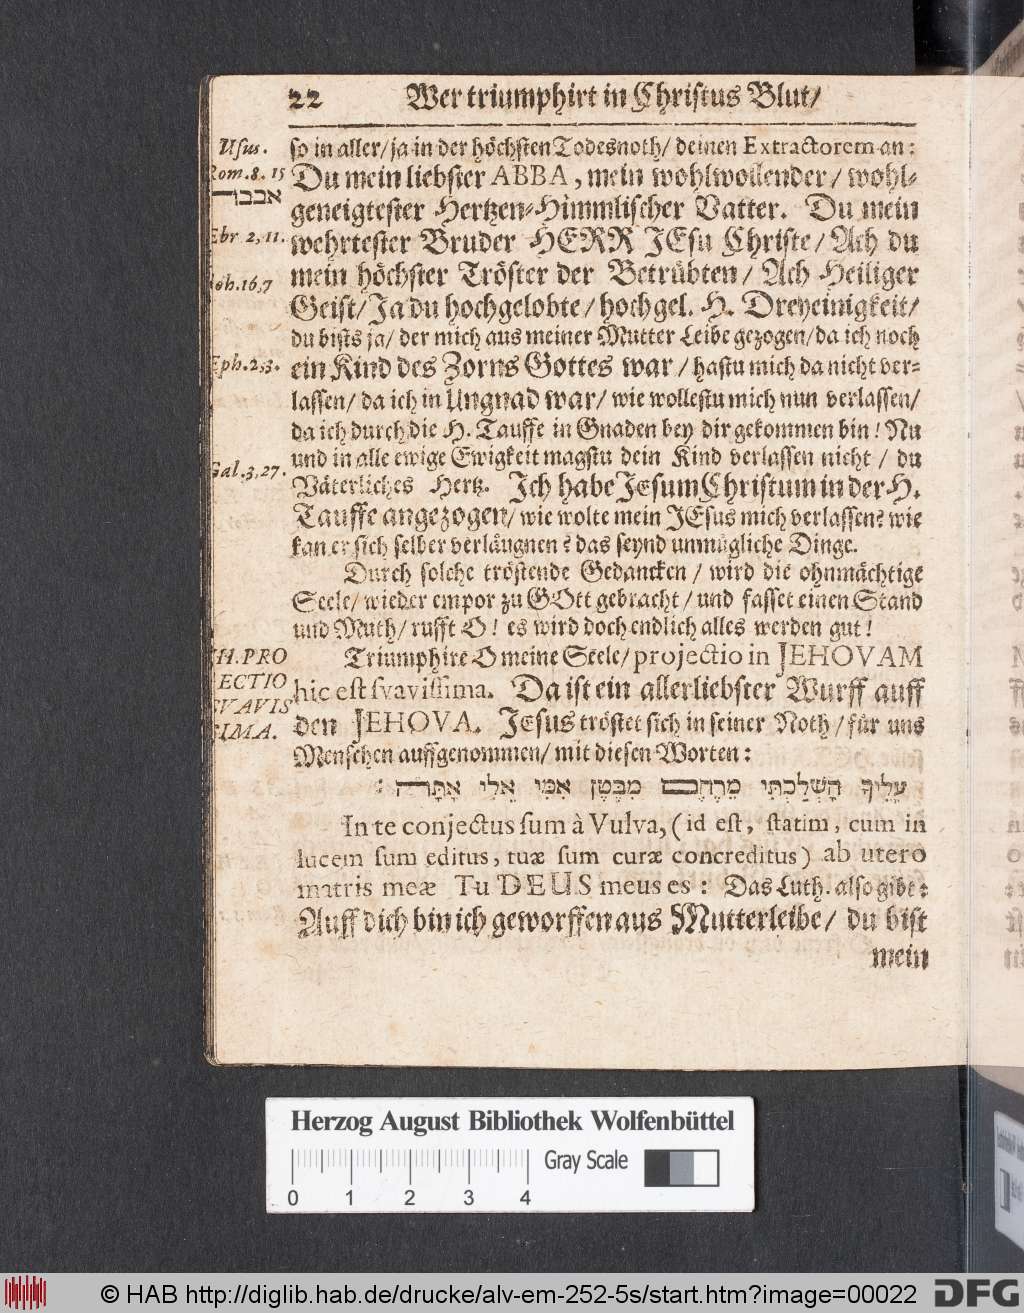 22 Wer triumphirt in Christus Blut/
Usus.
Rom. 8. 15
Ebr 2, 11.
Joh. 16, 7
Eph. 2, 3.
Gal. 3, 27.
III. PRO
JECTIO
SVAVIS
SIMA.
so in aller/ ja in der höchsten Todesnoth/ deinen Extractorem an:
Du mein liebster ABBA, mein wohlwollender/ wohl-
geneigtester Hertzen-Himmlischer Vatter. Du mein
wehrtester Bruder HERR JEsu Christe/ Ach du
mein höchster Tröster der Betrübten/ Ach Heiliger
Geist/ Ja du hochgelobte/ hochgel. H. Dreyeinigkeit/
du bists ja/ der mich aus meiner Mutter Leibe gezogen/ da ich noch
ein Kind des Zorns Gottes war/ hastu mich da nicht ver-
lassen/ da ich in Ungnad war/ wie wollestu mich nun verlassen/
da ich durch die H. Tauffe in Gnaden bey dir gekommen bin! Nu
und in alle ewige Ewigkeit magstu dein Kind verlassen nicht/ du
Väterliches Hertz. Ich habe JEsum Christum in der H.
Tauffe angezogen/ wie wolte mein JEsus mich verlassen? wie
kan er sich selber verläugnen? das seynd unmügliche Dinge.
Durch solche tröstende Gedancken/ wird die ohnmächtige
Seele/ wieder empor zu GOtt gebracht/ und fasset einen Stand
und Muth/ rufft O! es wird doch endlich alles werden gut!
Triumphire O meine Seele/ projectio in JEHOVAM
hic est svavissima. Da ist ein allerliebster Wurff auff
den JEHOVA. JEsus tröstet sich in seiner Noth/ für uns
Menschen auffgenommen/ mit diesen Worten:
עָלֶיךָ הָשְׁלַכְתִּי מֵרָחֶם מִבֶּטֶן אִמִּי אֵלִי אָתָּה:
In te conjectus sum à Vulva, (id est, statim, cum in
lucem sum editus, tuæ sum curæ concreditus) ab utero
matris meæ Tu DEUS meus es: Das Luth. also gibt:
Auff dich bin ich geworffen aus Mutterleibe/ du bist
mein
Herzog August Bibliothek Wolfenbüttel
Gray Scale
0 1 2 3 4
© HAB http://diglib.hab.de/drucke/alv-em-252-5s/start.htm?image=00022
DFG